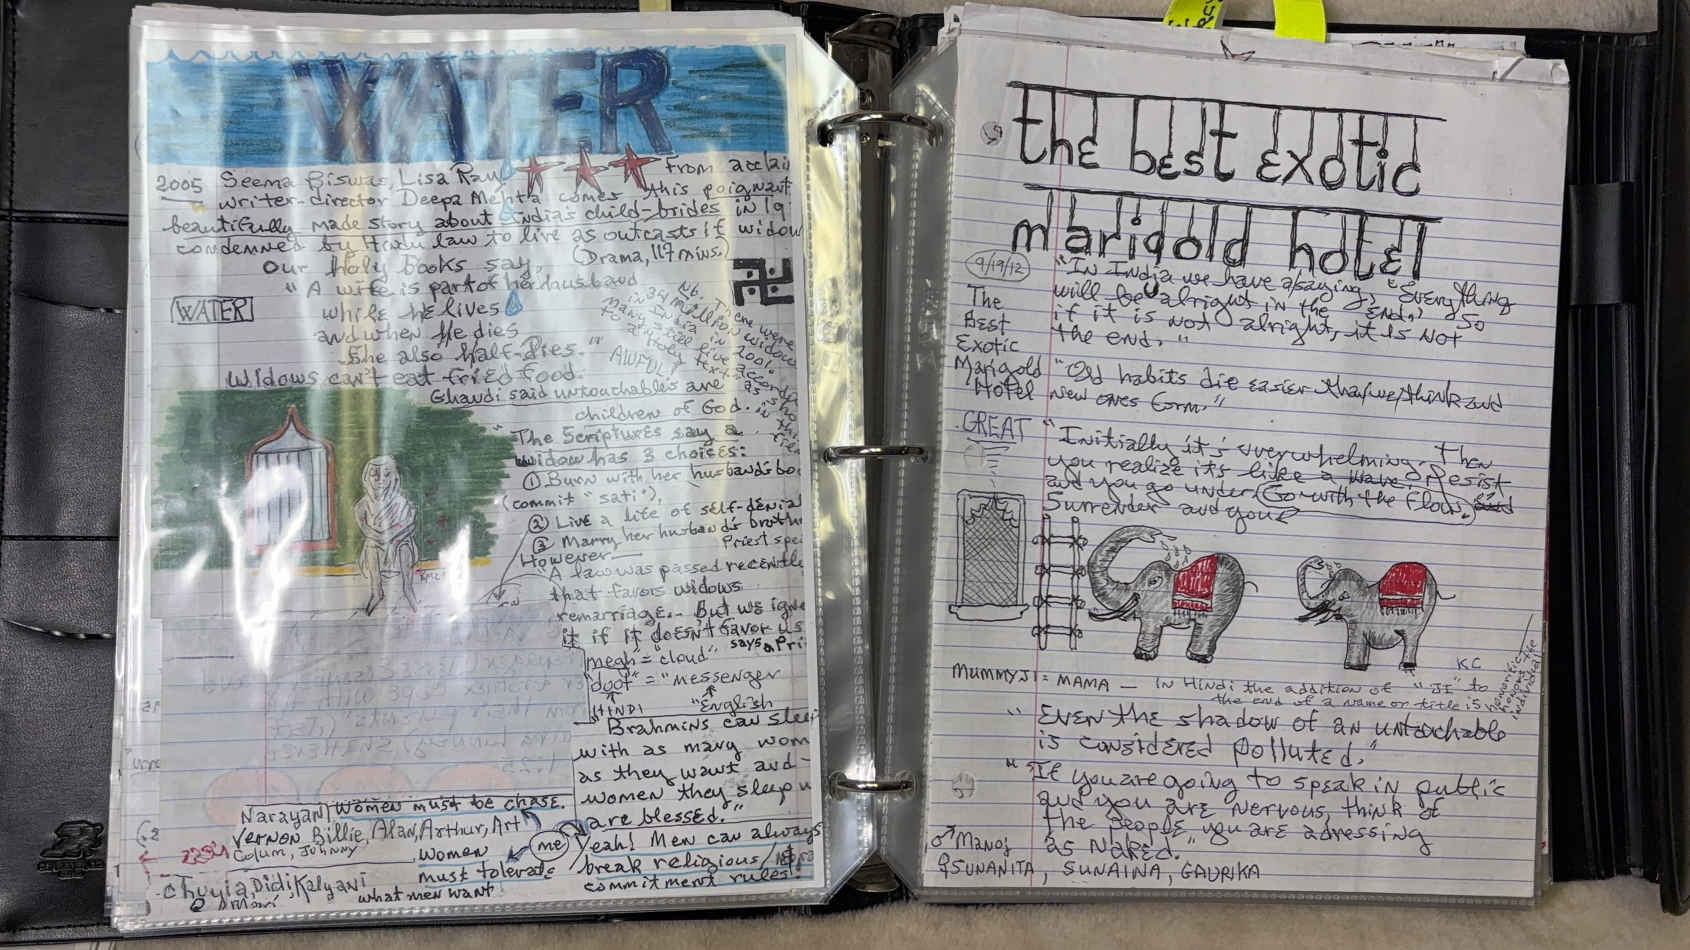 WATER
2005 Seema Biswas, Lisa Ray
From
writer-director Deepa Mehta comes this poignant
beautifully made story about India's child-brides in 19
condemned by Hindu law to live as outcasts if widow
(Drama, 117 mins.)
Our holy books say,
"A wife is part of her husband
WATER
while he lives
and when he dies
she also half-dies."
AWFUL!
Widows can't eat fried food.
Ghandi said untouchables are
children of God.
Nb. There were
34 million widows
India in 2001.
many still live
holy text
"The Scriptures say a
widow has 3 choices:
① Burn with her husband's bo
(commit "sati"),
② Live a life of self-denial
③ Marry her husband's broth
However—
Priest spe
"A law was passed recently
that favors widows
remarriage.. But we igno
it if it doesn't favor us
says a Pri
megh = cloud"
doot" = "messenger
HINDI
"English
"Brahmins can sleep
with as many wom
as they want and
women they sleep w
are blessed."
Narayan
women must be chase.
Vernon Billie, Alan, Arthur, Art
Colum, Johnny
me
women
must tolerate
what men want
Yeah! Men can always
break religious
commitment rules!
Chuyia, Didi Kalyani
the best exotic
marigold hotel
9/19/12
"In India we have a saying, "Everything
will be alright in the end," so
if it is not alright, it is not
the end."
The
Best
Exotic
Marigold
Hotel
GREAT
"Old habits die easier than we think and
new ones form."
"Initially it's overwhelming. Then
you realize it's like a wave. Resist
and you go under. Go with the flow.
Surrender and you
KC
MUMMYJI = MAMA — IN HINDI the addition of "JI" to
the end of a name or title is
"Even the shadow of an untouchable
is considered polluted."
"If you are going to speak in public
and you are nervous, think of
the people you are adressing
as naked."
♂ Manoj
♀ SUNANITA, SUNAINA, GAURIKA